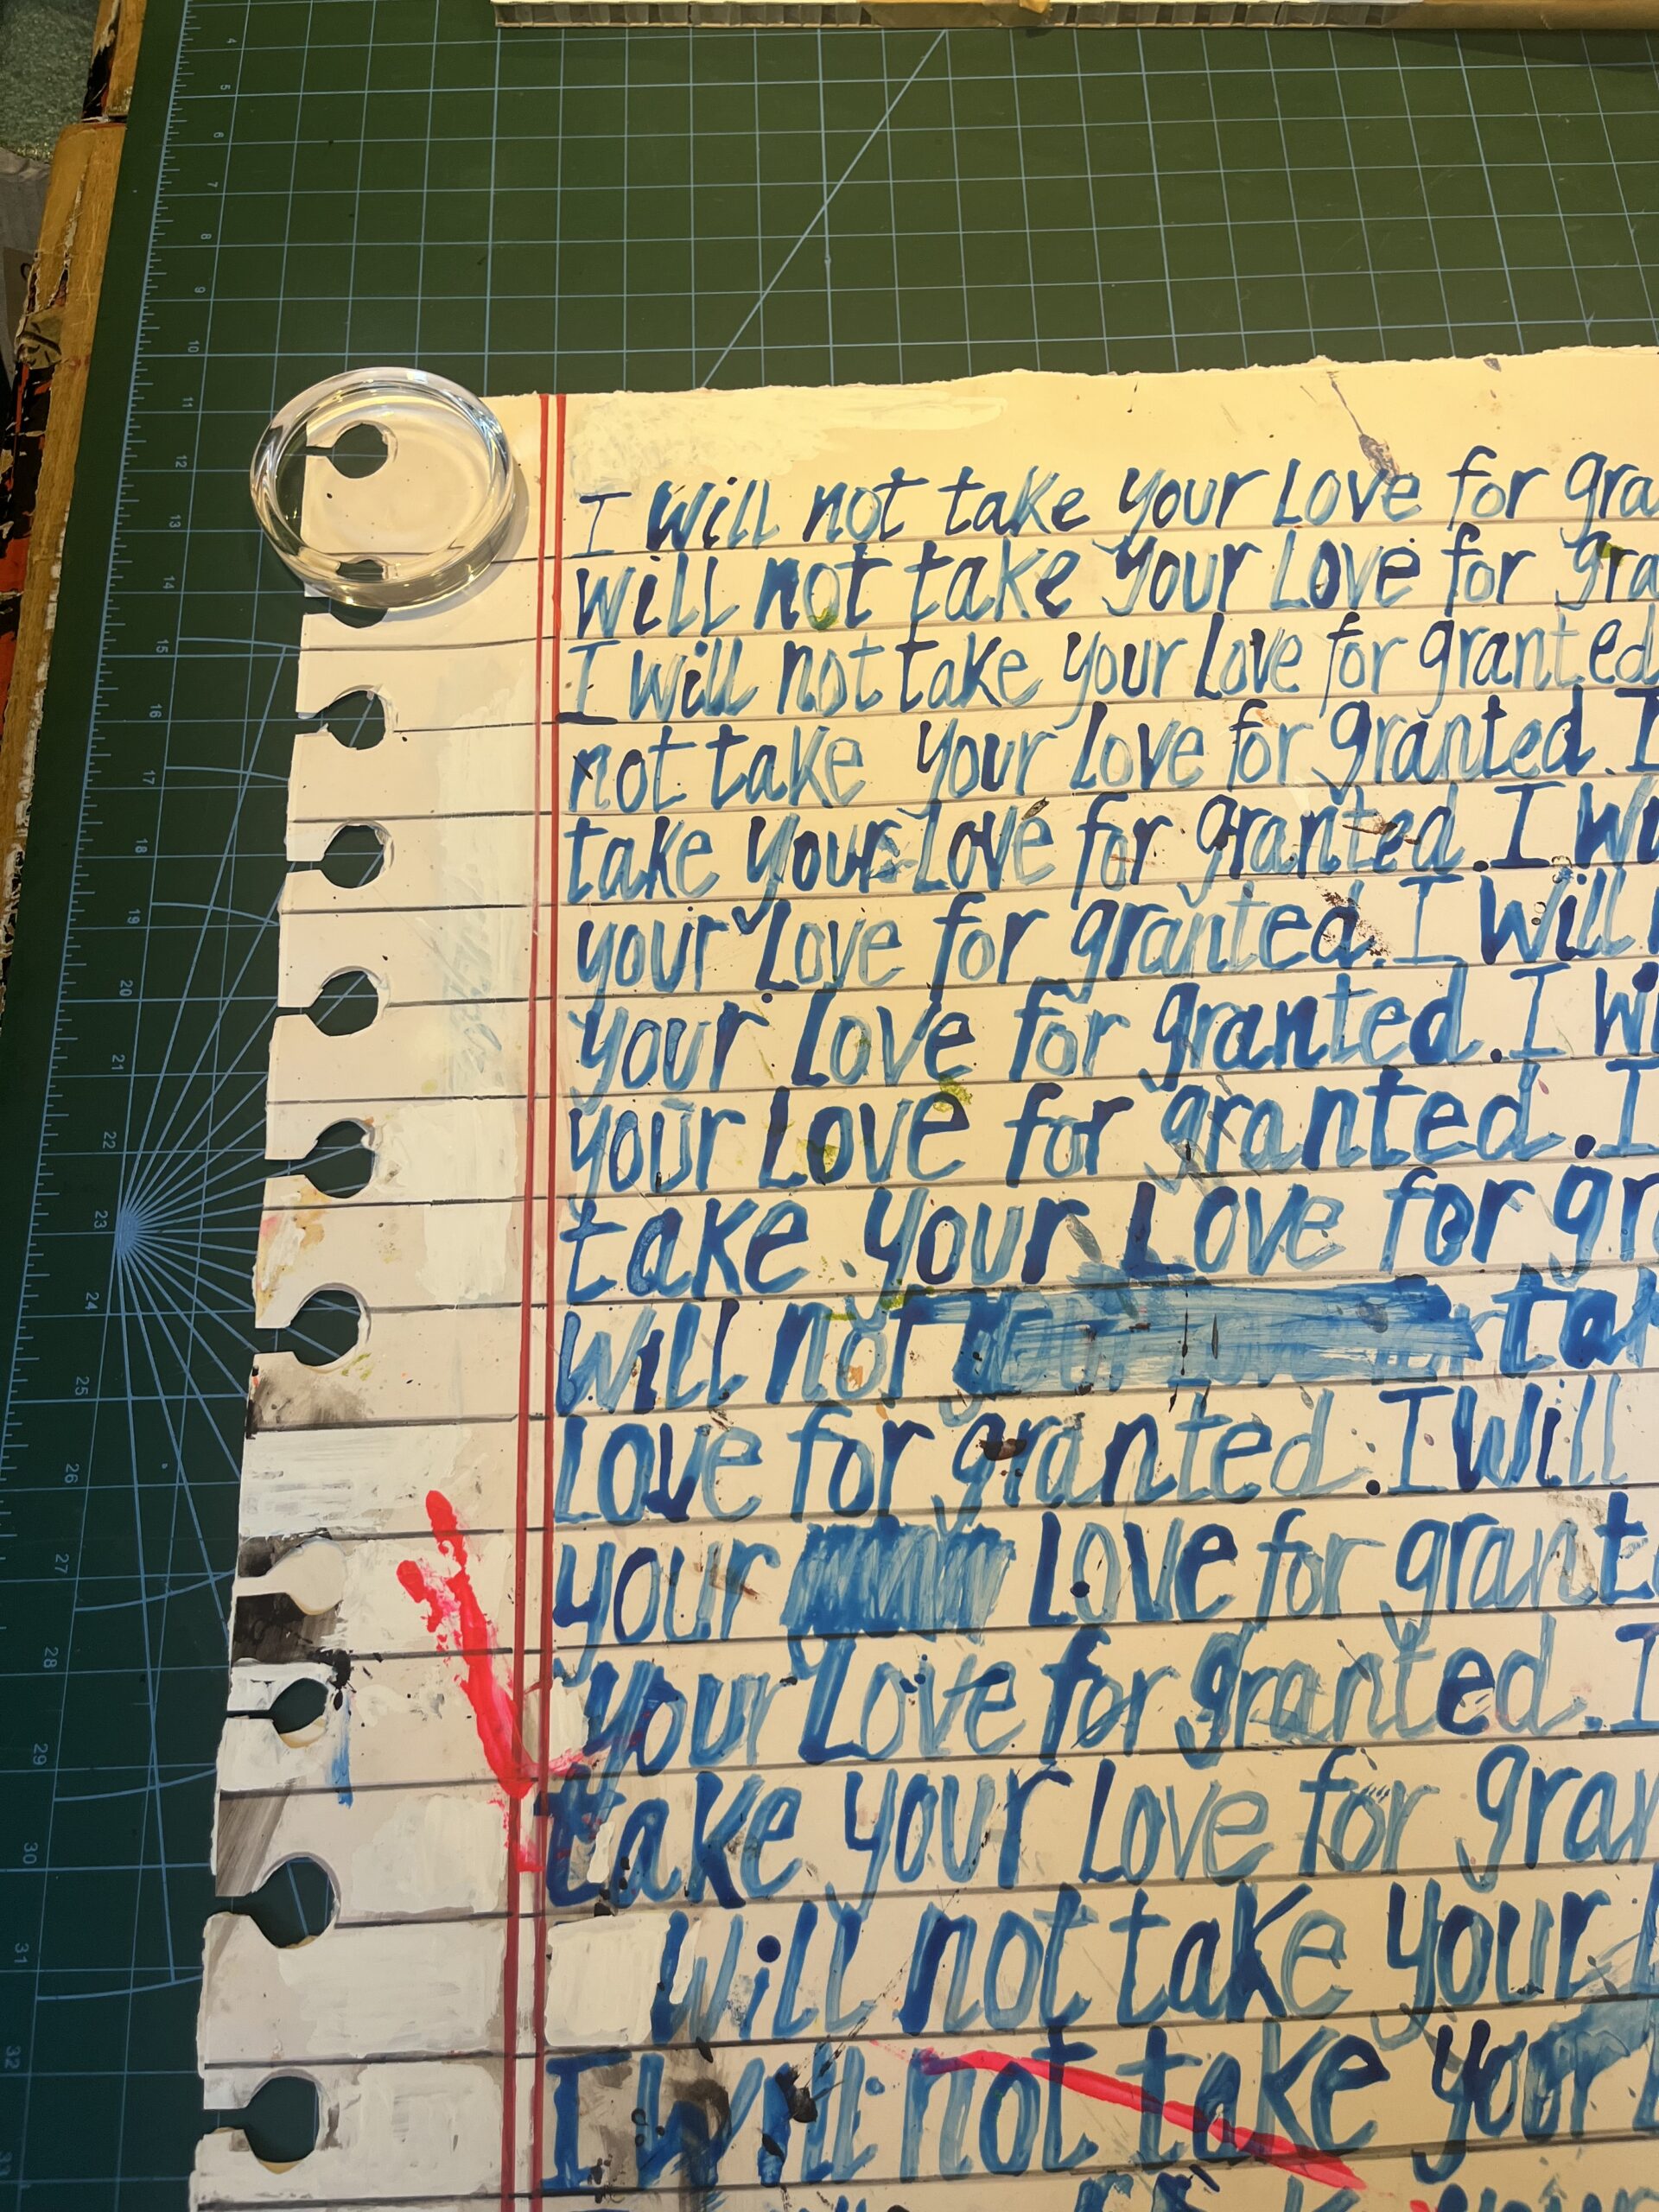 4
5
6
7
8
9
10
11
12
13
14
15
16
17
18
19
20
21
22
23
24
25
26
27
28
29
30
31
32
33
I will not take your Love for gra
will not take your Love for gra
I will not take your Love for granted
not take your Love for granted. I
take your Love for granted. I Wi
your Love for granted. I Will
your Love for granted. I Wi
your Love for granted. I
take your Love for gr
will not tak
Love for granted. I Will
your Love for grante
your Love for granted. I
take your Love for gran
will not take your L
I will not take your L